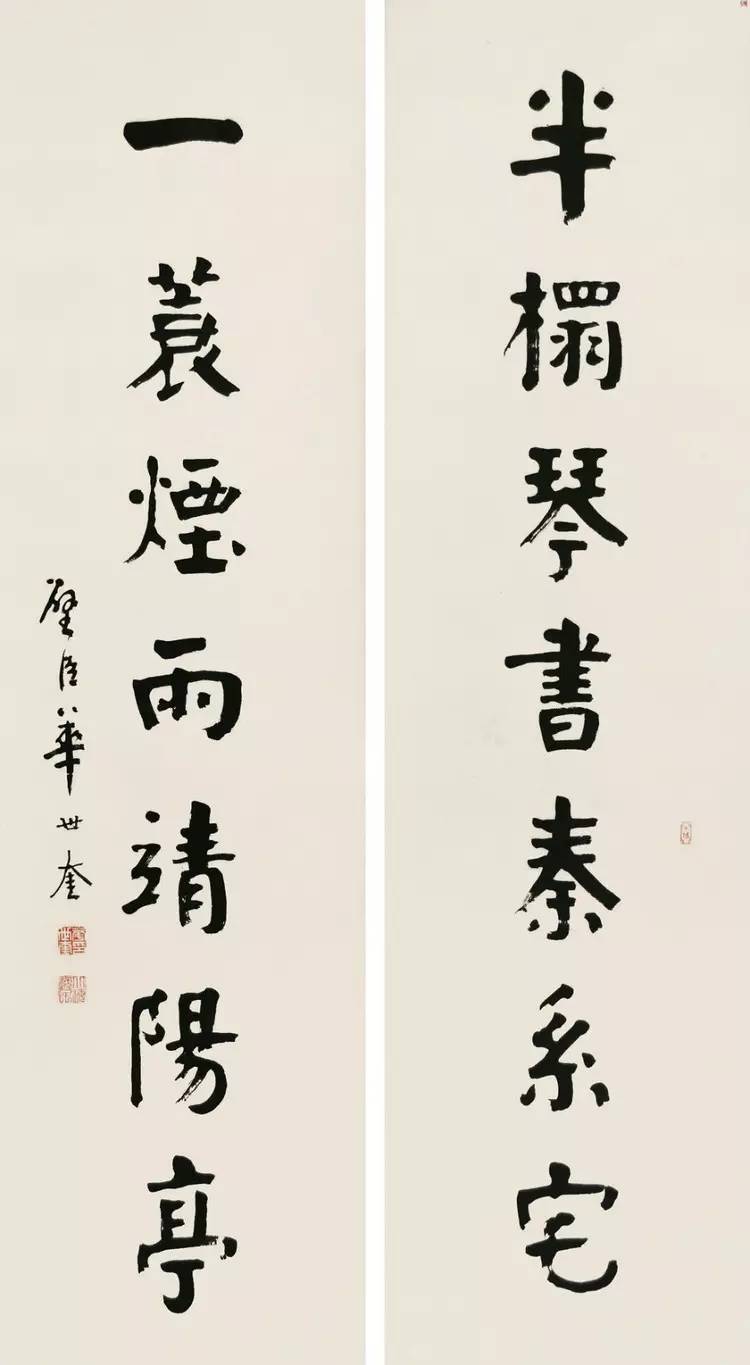 半榻琴書秦系宅
一蓑煙雨靖陽亭
璧臣華世奎